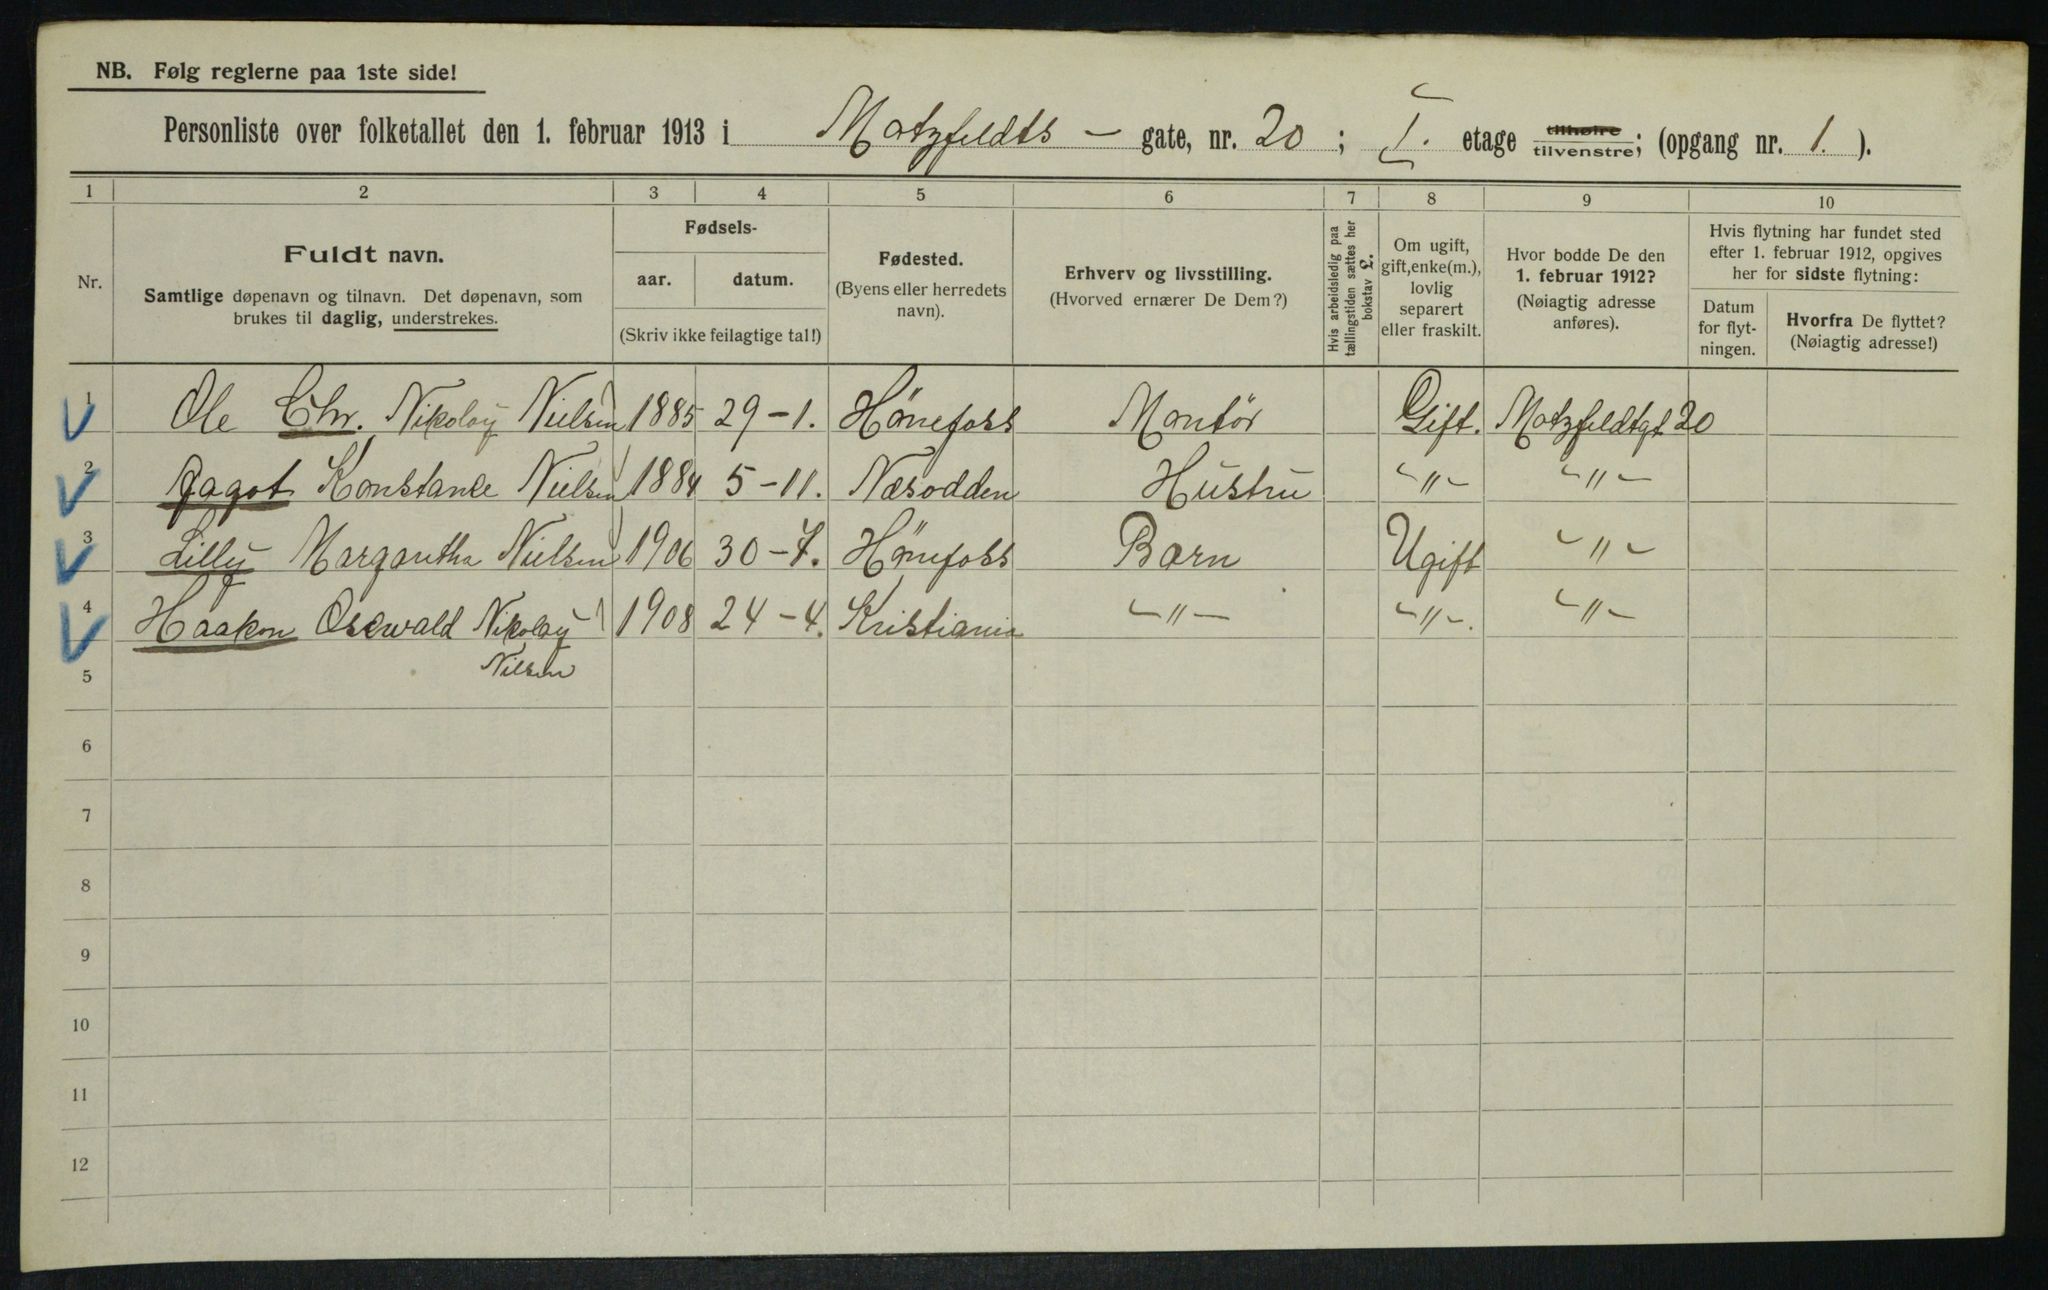 NB. Følg reglerne paa 1ste side!
Personliste over folketallet den 1. februar 1913 i Motzfeldts - gate, nr. 20 ; I. etage tilhøire tilvenstre; (opgang nr. 1. ).
1 2 3 4 5 6 7 8 9 10
Nr.
Fuldt navn.
Samtlige døpenavn og tilnavn. Det døpenavn, som
brukes til daglig, understrekes.
Fødsels-
aar. datum.
(Skriv ikke feilagtige tal!)
Fødested.
(Byens eller herredets
navn).
Erhverv og livsstilling.
(Hvorved ernærer De Dem?)
Hvis arbeidsledig paa
tællingstiden sættes her
bokstav £.
Om ugift,
gift, enke(m.),
lovlig
separert
eller fraskilt.
Hvor bodde De den
1. februar 1912?
(Nøiagtig adresse
anføres).
Hvis flytning har fundet sted
efter 1. februar 1912, opgives
her for sidste flytning:
Datum
for flyt-
ningen.
Hvorfra De flyttet?
(Nøiagtig adresse!)
1 Ole Chr. Nikolay Nielsen 1885 29-1. Hönefoss Montör Gift. Motzfeldtgt. 20
2 Konstance Nielsen 1884 5-11. Næsodden Hustru -"- -"-
3 Lilly Margaretha Nielsen 1906 30-7. Hönefoss Barn Ugift -"-
4 Haakon Oscwald Nikolay 1908 24-4. Kristiania -"- -"-. -"-
Nilsen
5
6
7
8
9
10
11
12